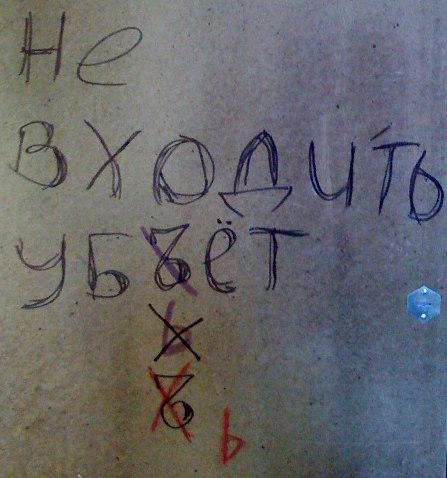 Не
входить
убъёт
ь
ъ
ь